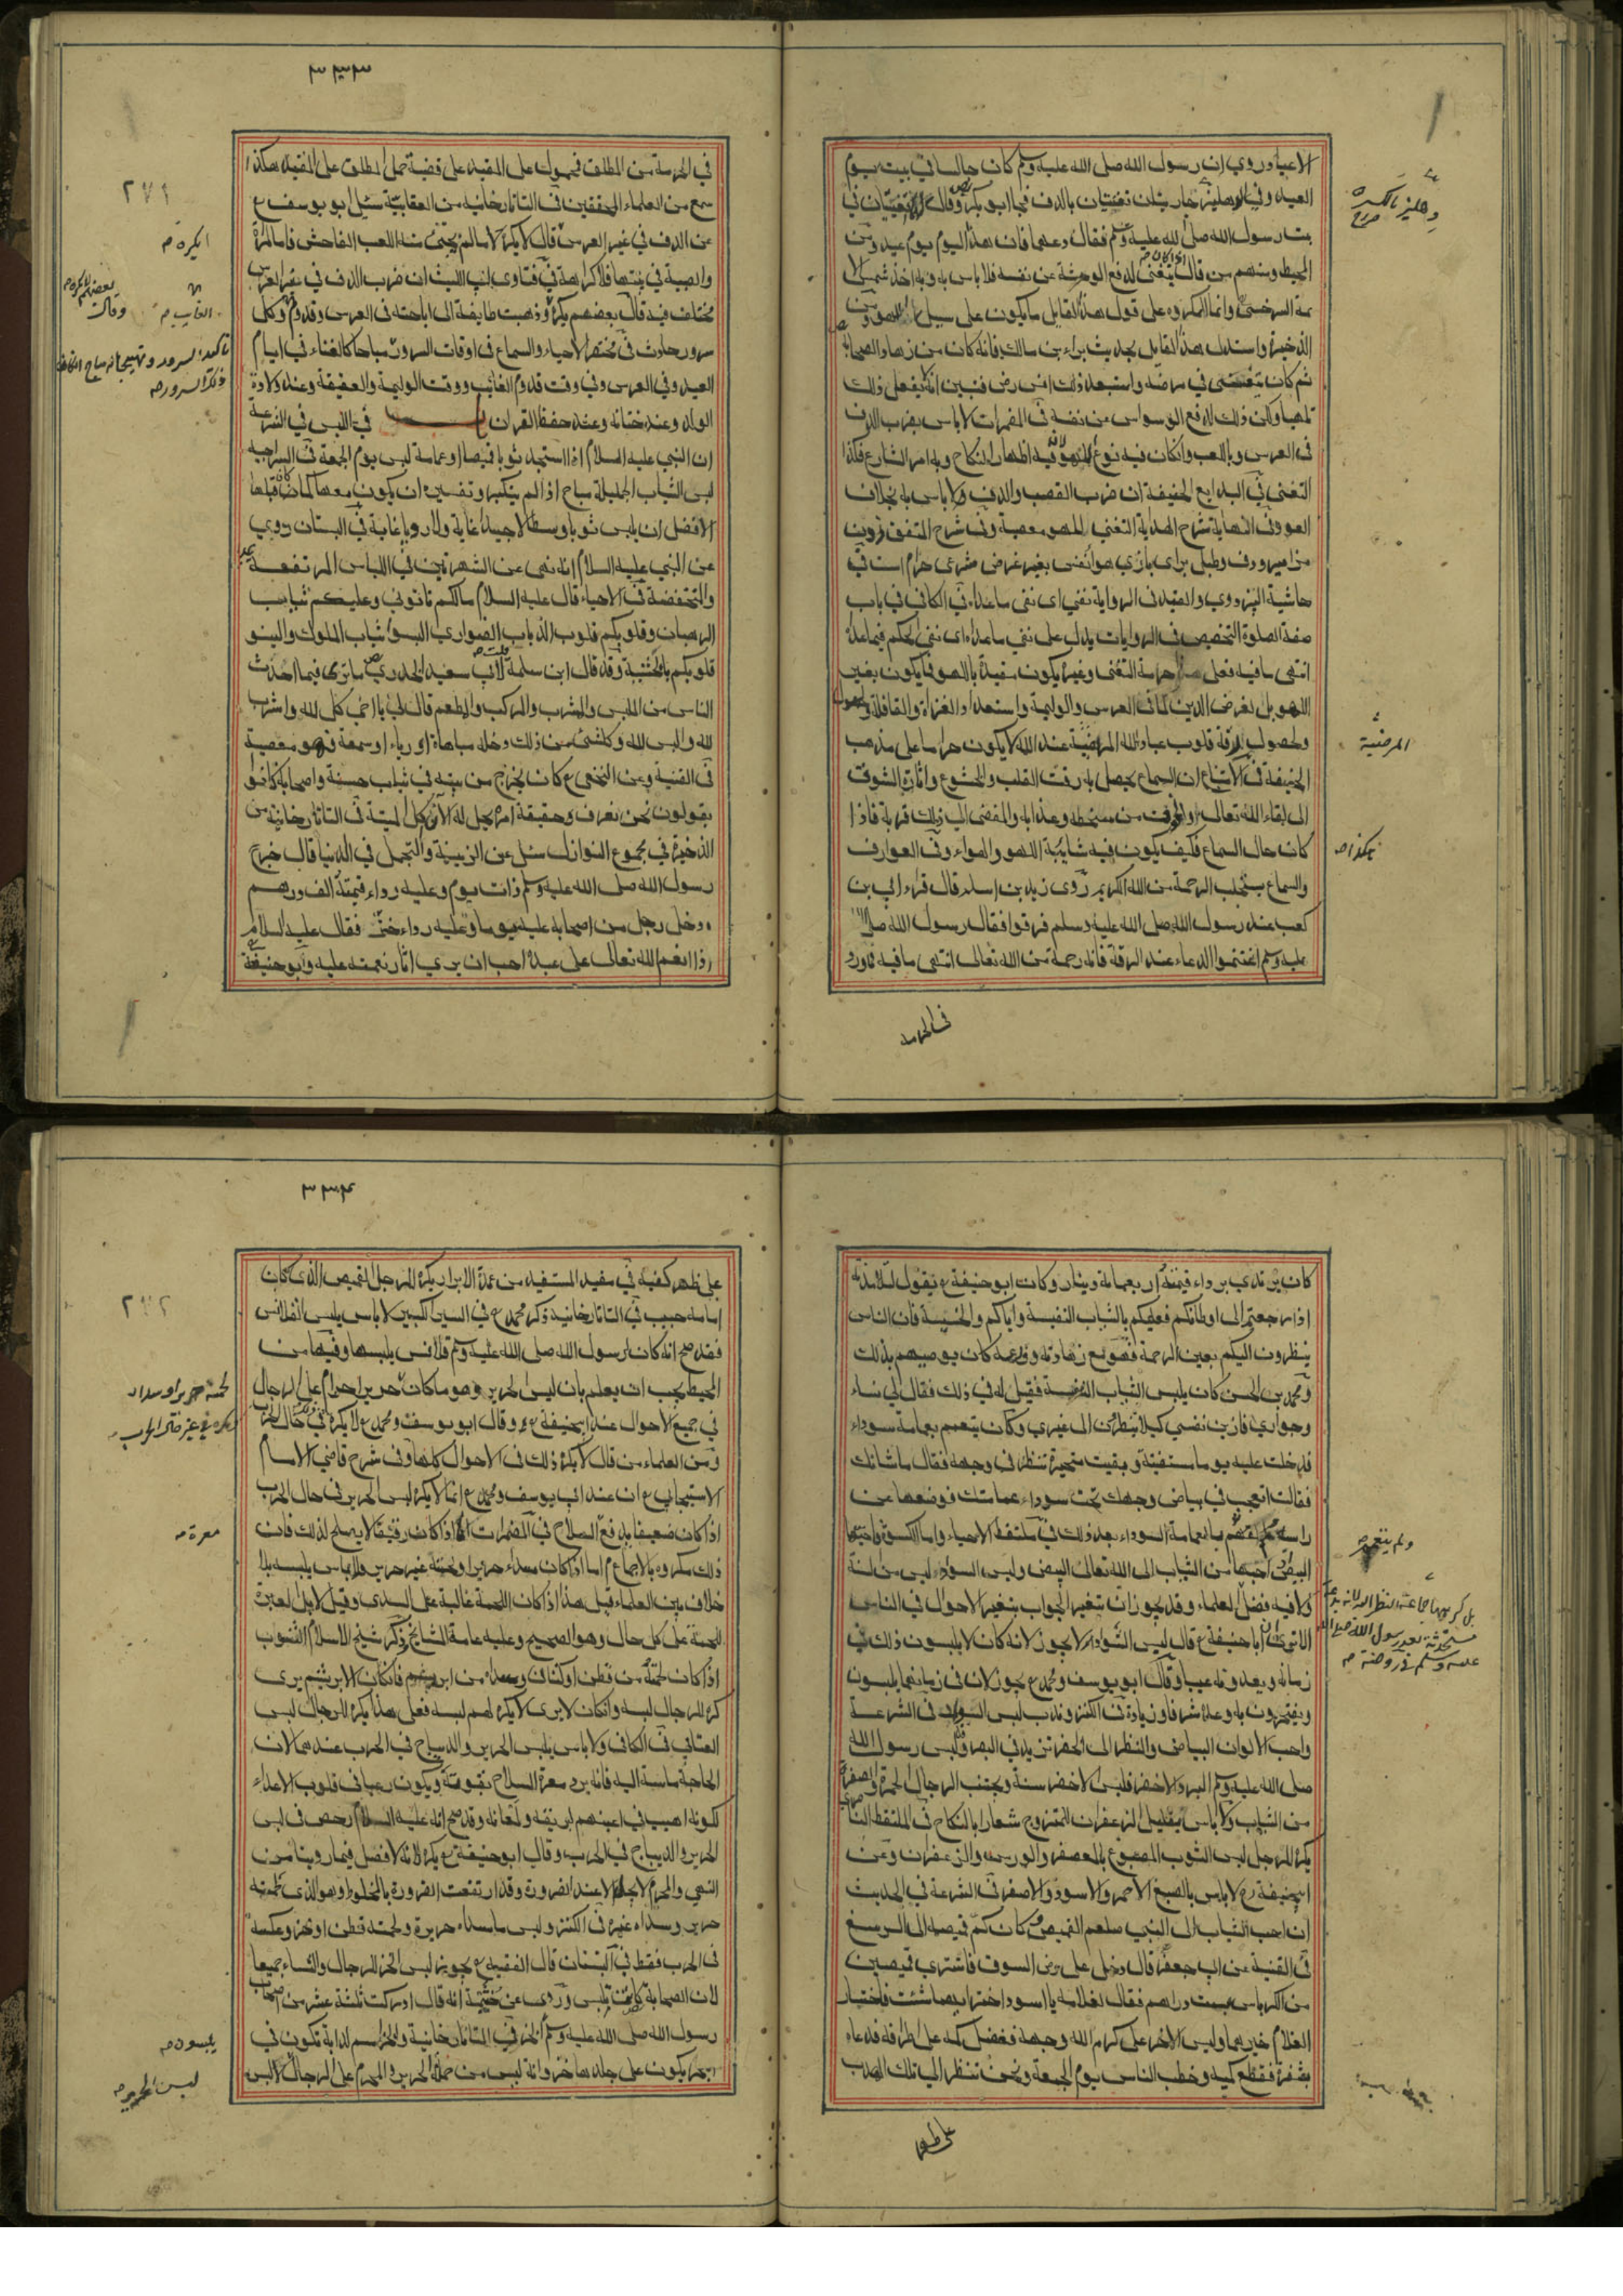 الاعياد وروي ان رسول الله صلى الله عليه وسلم كان جالسا في بيت يوم
العيد وفي الدهليز جاريتان تغنيتان بالدف فجا ابو بكر رض وقال تغنيتان في
بيت رسول الله صلى الله عليه وسلم فقال دعهما فان هذا اليوم يوم عيد ومن
المحيط ومنهم من قال يتغنى لدفع الوحشة عن نفسه فلا باس به وبه اخذ شمس الا
يمة السرخسي وانما المكروه على قول هذا القايل ما يكون على سبيل اللهو ومن
الذخيرة واستدل هذا القايل بحديث براء بن مالك فانه كان من زهاد الصحابة
ثم كان يتغنى في مرضه واستبعد ذلك انس رض فتبين انه يفعل ذلك
تلهيا ولكن ذلك لدفع الوسواس عن نفسه في المضمرات لا باس بضرب الدف
في العرس وباللعب وانكان فيه نوع لهو وفيه اظهار النكاح وبه امر الشارع فكذا
التغني في البدايع الحنيفة ان ضرب القصب والدف ولا باس به بخلاف
العود في النهاية شرح الهداية التغني للهو معصية وفي شرح المتفق
مزامير ودف وطبل براى بازي هوا تغنى بغير غرض شرعى حرام است في
حاشية البزدوي والقيد في الرواية تنفي اى نفى ما عداه في الكافي في باب
صفة الصلوة التخصيص في الروايات يدل على نفي ما عداه اى نفى الحكم فيما عداه
انتهى ما فيه فعلى هذا حرمة التغنى وغيره يكون مقيدا باللهو فما يكون بغير
اللهو بل لغرض الدين كما في العرس والوليمة واستعداد الغزاة والقافلة
ولحصول الرقة قلوب عباد الله المرضية عند الله لا يكون حراما على مذهب
الحنيفة في الامتناع ان السماع يحصل به رقت القلب والخشوع واثارة الشوق
الى لقاء الله تعالى والخوف من سخطه وعذابه والمفضى الى ذلك قربة فاذا
كان حال السماع فكيف يكون فيه شايبة اللهو والهواء وفي العوارف
والسماع يستجلب الرحمة من الله الكريم روى زيد بن اسلم قال قراء ابي بن
كعب عند رسول الله صلى الله عليه وسلم فرقوا فقال رسول الله صلى الله
عليه وسلم اغتنموا الدعاء عند الرقة فانه رحمة من الله تعالى انتهى ما فيه
في الحرمة
المرضية
هكذا صح
٣٣٣
٢٧١
في الحرمة من المطلق فمحمول على المقيد على قضية حمل المطلق على المقيد هكذا
سمع من العلماء المحققين في التاتارخانيه من العقابية سئل ابو يوسف ع
عن الدف في غير العرس قال لا يكره لا سالم يجي منه اللعب الفاحش فاما المرأة
والصبية في بيتها فلا كراهة في فتاوى ابي الليث ان ضرب الدف في غير العرس
مختلف فيه قال بعضهم يكره وذهبت طايفة الى اباحته في العرس وقدوم وكل
سرور حادث في مختصر الاحياء والسماع في اوقات السرور مباحا كالغناء في ايام
العيد وفي العرس وفي وقت قدوم الغائب ووقت الوليمة والعقيقة وعند ولادة
الولد وعند ختانه وعند حفظ القران في اللبس في الشرعة
ان النبي عليه السلام اذا استجد ثوبا قميصا او عمامة لبس يوم الجمعة في السراجيه
لبس الثياب الجميلة مباح اذا لم يتكبر وتفسيره ان يكون معها كما كان قبلها
الافضل ان يلبس ثوبا وسطا لا جيدا غاية ولا رديا غاية في البستان روي
عن النبي عليه السلام انه نهى عن الشهرتين في اللباس المرتفعة
والمنخفضة في الاحياء قال عليه السلام مالكم تاتوني وعليكم ثياب
الرهبان وقلوبكم قلوب الذياب الضواري البسوا ثياب الملوك والينو
قلوبكم بالخشية وقد قال ابن سلمة لابي سعيد الخدري رض ما ترى فيما احدث
الناس من الملبس والمشرب والمركب والمطعم قال لي يا اخي كل لله واشرب
لله والبس لله وكل شئ من ذلك دخله مباهاة او رياء او سمعة فهو معصية
في القنية وعن النخعي ع كان يخرج من بيته في ثياب حسنة واصحابه كانوا
يقولون نحن نعرف وحقيقة امره يحل له الان اكل الميتة في التاتارخانيه من
الذخيرة في مجموع النوازل سئل عن الزينة والتجمل في الدنيا قال خرج
رسول الله صلى الله عليه وسلم ذات يوم وعليه رداء قيمته الف درهم
ودخل رجل من اصحابه عليه يوما وعليه رداء خز فقال عليه السلام
اذا انعم الله تعالى على عبد احب ان يرى اثار نعمته عليه وابو حنيفة
كان يرتدي برداء قيمته اربعماية دينار وكان ابو حنيفة ع يقول لتلامذته
اذا رجعتم الى اوطانكم فعليكم بالثياب النفيسة واياكم والخسيسة فان الناس
ينظرون اليكم بعين الرحمة فهو مع زهادته وورعه كان يوصيهم بذلك
ومحمد بن الحسن كان يلبس الثياب النفيسة فقيل له في ذلك فقال لي نساء
وجواري فازين نفسي كيلا ينظرن الى غيري وكان يتعمم بعمامة سوداء
فدخلت عليه يوما مستفتية وبقيت متحيرة تنظر في وجهه فقال ما شانك
فقالت اتعجب في بياض وجهك تحت سوداء عمامتك فوضعها عن
راسه بالعمامة السوداء بعد ذلك في ملتقط الاحياء واما الكسوة
البيض من الثياب الى الله تعالى البيض ولبس السواد ليس من السنة
ولا فيه فضل العلماء وقد يجوز ان يتغير الجواب بتغير الاحوال في الناس
الا ترى ان ابا حنيفة ع قال لبس السواد لا يجوز لانه كان لا يلبسون ذلك في
زمانه ويعدونه عيبا وقال ابو يوسف ومحمد ع يجوز لان في زمانهما يلبسون
ويفتخرون به وعده شرفا وزيادة في الكنز وندب لبس السواد في الشرعة
واحب الالوان البياض والنظر الى الخضرة تزيد في البصر ولبس رسول الله
صلى الله عليه وسلم البرد الاخضر فلبس الاخضر سنة ويجتنب الرجال الحمرة والصفرة
من الثياب ولا باس بقليل الزعفران للمتزوج شعارا بالنكاح في الملتقط
يكره للرجل لبس الثوب المصبوغ بالمعصفر والورس والزعفران وعن
ابيحنيفة رع لا باس بالصبغ الاحمر والاسود والاصفر في الشرعة في الحديث
ان احب الثياب الى النبي صلعم القميص وكان كم قميصه الى الرسغ
في القنية عن ابي جعفر قال دخل على رض السوق فاشترى قميصين
من الكرباس بست دراهم فقال لغلامه يا اسود اختر ايهما شئت فاختار
الغلام خيرهما ولبس الاخر على كرم الله وجهه ففضل كمه على اطرافه فدعاه
بشفرة فقطع كميه وخطب الناس يوم الجمعة ونحن ننظر الى تلك الهدب
على ظهر
٣٣٤
٢٧٢
على ظهر كفيه في مفيد المستفيد من عمدة الابرار يكره للرجل القميص الذى كان
امامه جيب في التاتارخانية ذكر محمد ع في السير الكبير لا باس بلبس القلانس
فقد صح انه كان لرسول الله صلى الله عليه وسلم قلانس يلبسها وفيها من
المحيط يجب ان يعلم بان لبس الحرير وهو ما كان حريرا حرام على الرجال
في جميع الاحوال عند ابيحنيفة ع وقال ابو يوسف ومحمد ع لا يكره في حال الحرب
ومن العلماء من قال لا يكره ذلك في الاحوال كلها وفي شرح قاضي الامام
الاسبيجابي ع ان عند ابي يوسف ومحمد ع انما لا يكره لبس الحرير في حال الحرب
اذا كان ضعيفا يدفع السلاح في المضمرات اما اذا كان رقيقا لا يصلح لذلك فان
ذلك مكروه بالاجماع اما اذا كان سداه حريرا ولحمته غير حرير فلا باس بلبسه بلا
خلاف بين العلماء قيل هذا اذا كان اللحمة غالبة على السدى وقيل لا بل العبرة
للحمة على كل حال وهو الصحيح وعليه عامة المشايخ ذكر شيخ الاسلام الثوب
اذا كان لحمته من قطن او كتان وسداه من ابريسم فان كان الابريسم يرى
كره للرجال لبسه وانكان لا يرى لا يكره لهم لبسه فعلى هذا يكره للرجال لبس
العتابي في الكافى ولا باس بلبس الحرير والديباج في الحرب عندهما لان
الحاجة ماسة اليه فانه يرد معرة السلاح بقوته ويكون رعبا في قلوب الاعداء
لكونه اهيب في اعينهم لبريقه ولمعانه وقد صح انه عليه السلام رخص في لبس
الحرير والديباج في الحرب وقال ابو حنيفة ع يكره لانه لا فصل فيما روينا من
النهي والمحرم لا يحل الا عند الضرورة وقد ارتفعت الضرورة بالمخلوط وهو الذى لحمته
حرير وسداه غيره في الكنز ولبس ما سداه حرير ولحمته قطن او خز وعكسه
في الحرب فقط في البستان قال الفقيه ع يجوز لبس الخز للرجال والنساء جميعا
لان الصحابة كانت تلبس وروى عن خيثمة انه قال ادركت ثلثة عشر من اصحاب
رسول الله صلى الله عليه وسلم الخز في التاتارخانية والخز اسم لدابة تكون في
البحر يكون على جلدها خز وانه ليس من جملة الحرير والمحرم على الرجال لبس
معرة صح
يلبسون صح
لبس الحرير صح